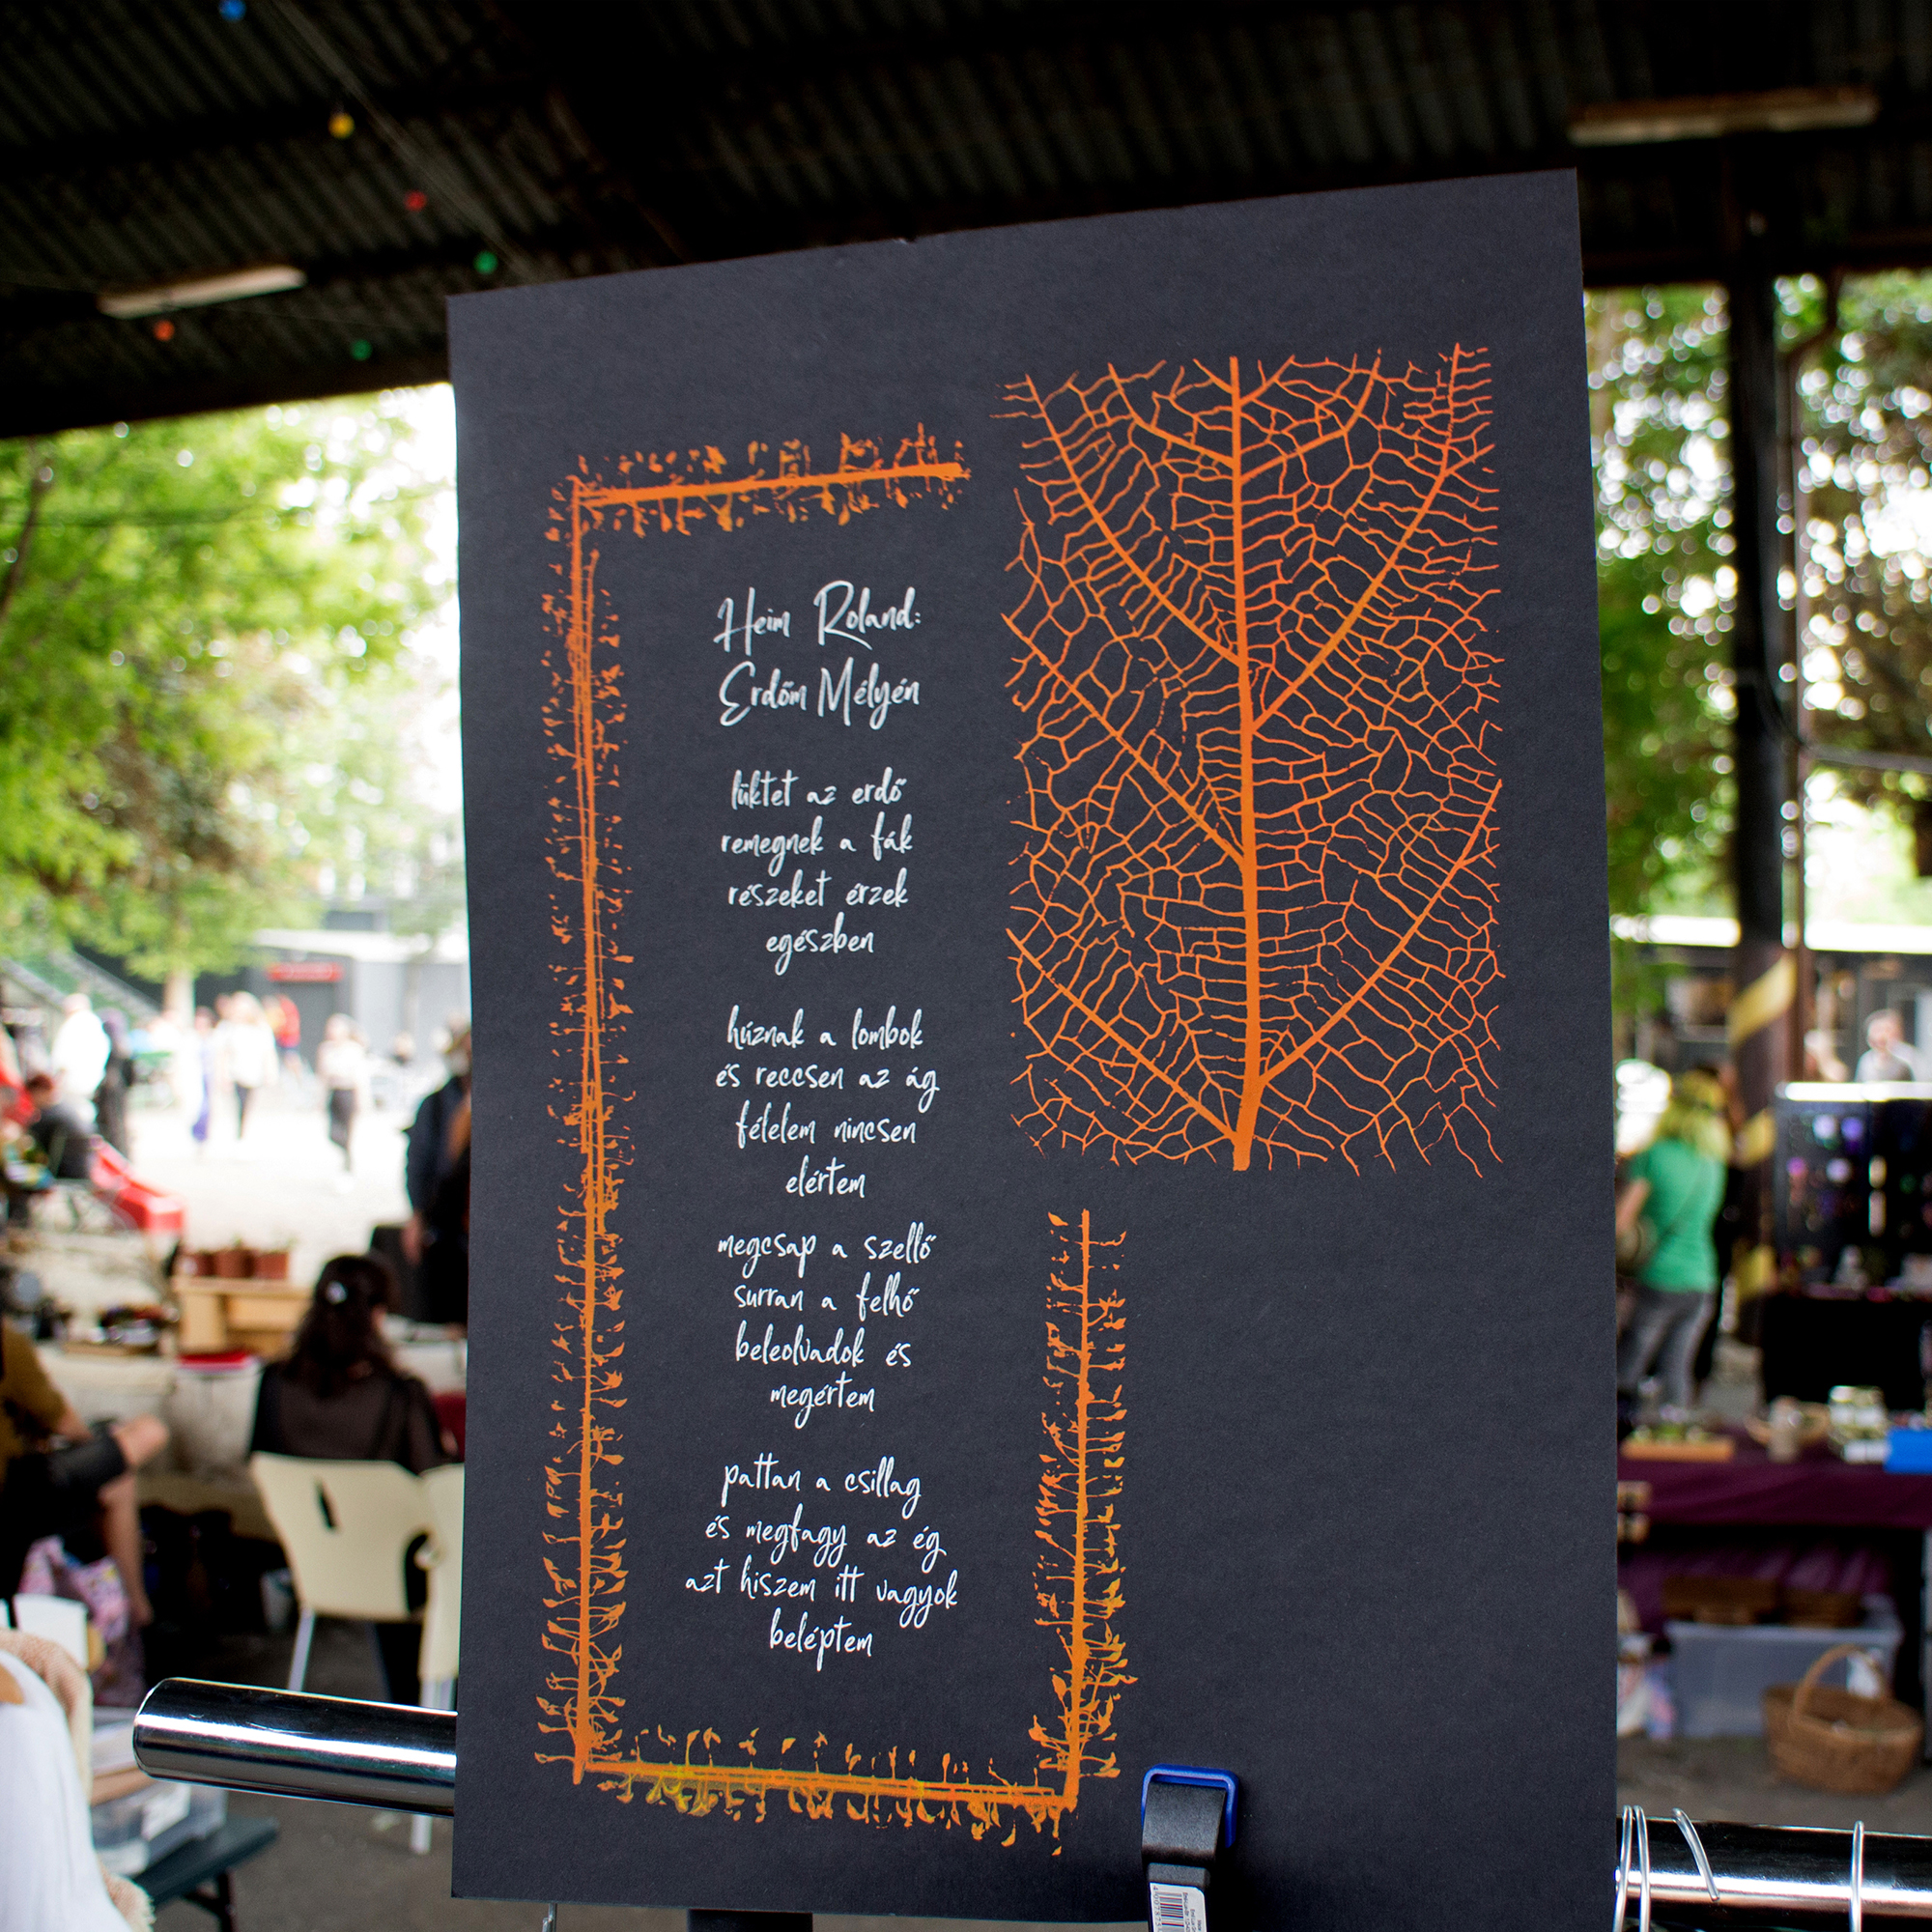 Heim Roland:
Erdőm Mélyén
lüktet az erdő
remegnek a fák
részeket érzek
egészben
húznak a lombok
és reccsen az ág
félelem nincsen
elértem
megcsap a szellő
surran a felhő
beleolvadok és
megértem
pattan a csillag
és megfagy az ég
azt hiszem itt vagyok
beléptem